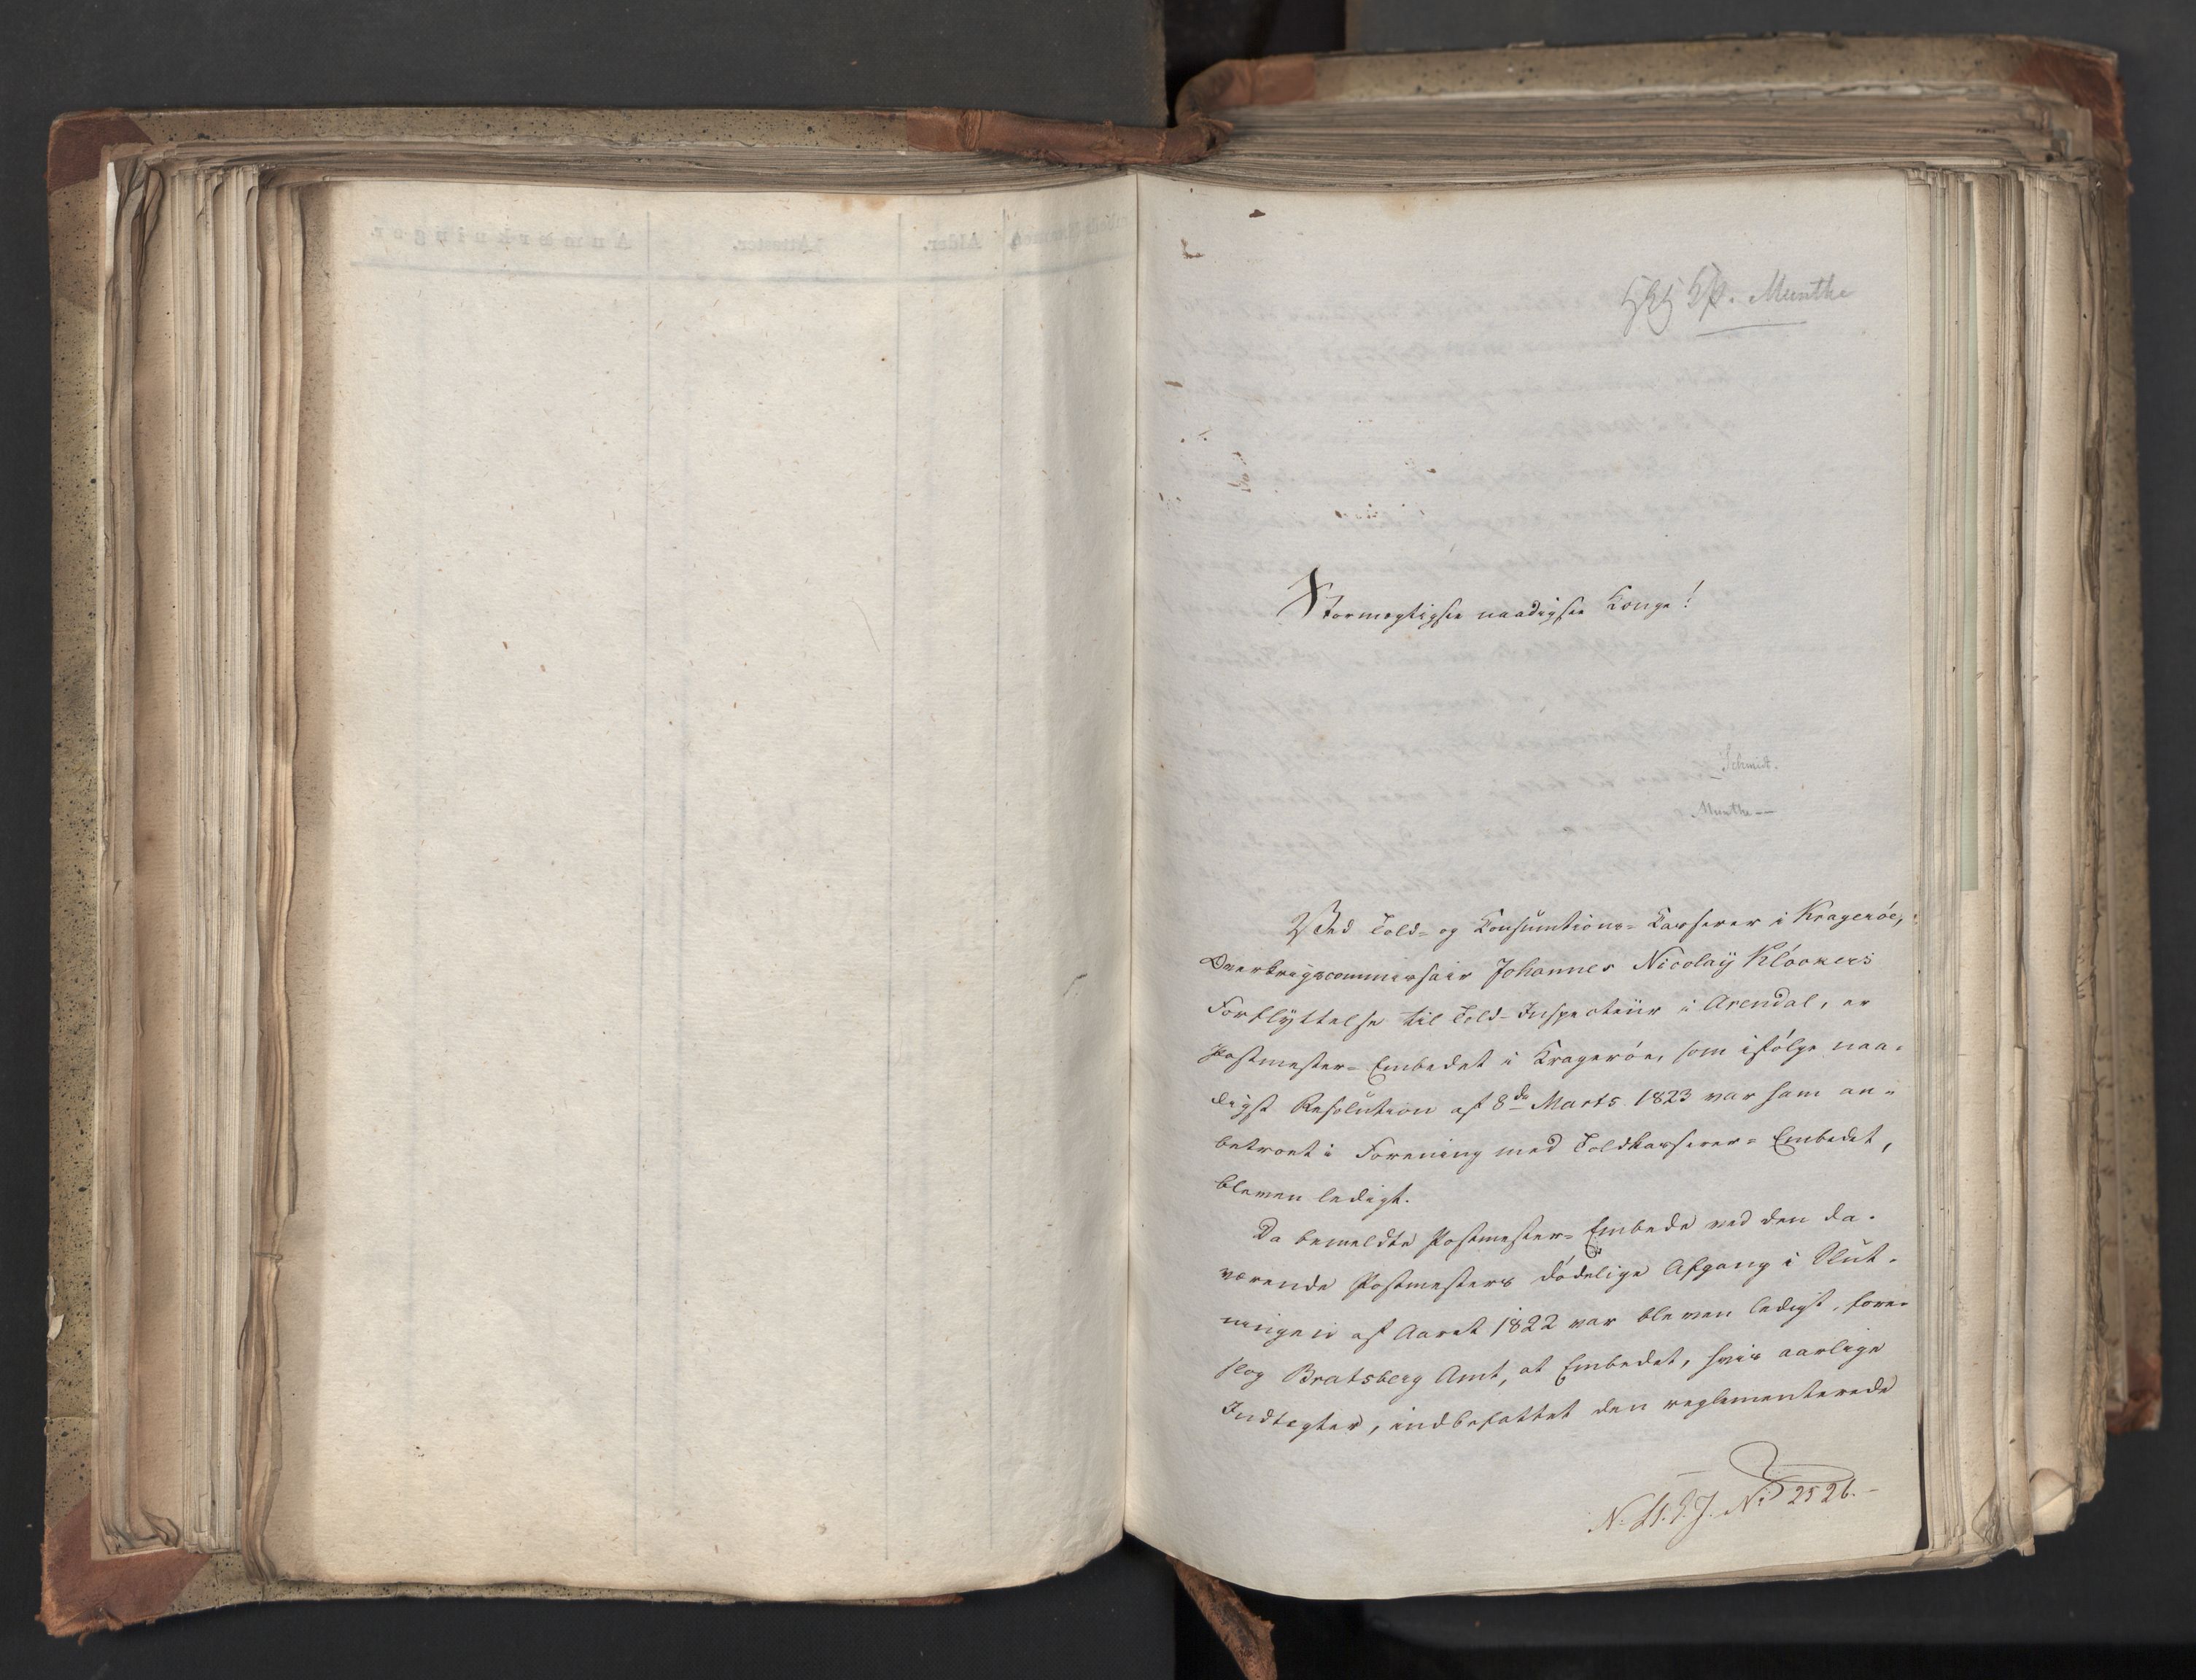 Munthe
Stormægtigste naadigste Konge!
Schmidt.
Munthe
Ved Told- og Consumtions-Casserer i Kragerøe,
Overkrigscommissair Johannes Nicolaÿ Klóckers
Forflÿttelse til Told-Inspecteur i Arendal, er
Postmester-Embedet i Kragerøe, som ifølge naa-
digst Resolution af 8de Marts 1823 var ham an-
betroet i Forening med Toldkasserer-Embedet,
bleven ledigt.
Da bemeldte Postmester-Embede ved den da-
værende Postmesters dødelige Afgang i Slut-
ningen af Aaret 1822 var bleven ledigt, fore-
slog Bratsberg Amt, at Embedet, hvis aarlige
Indtægter, indbefattet den reglementerede
No 2526.